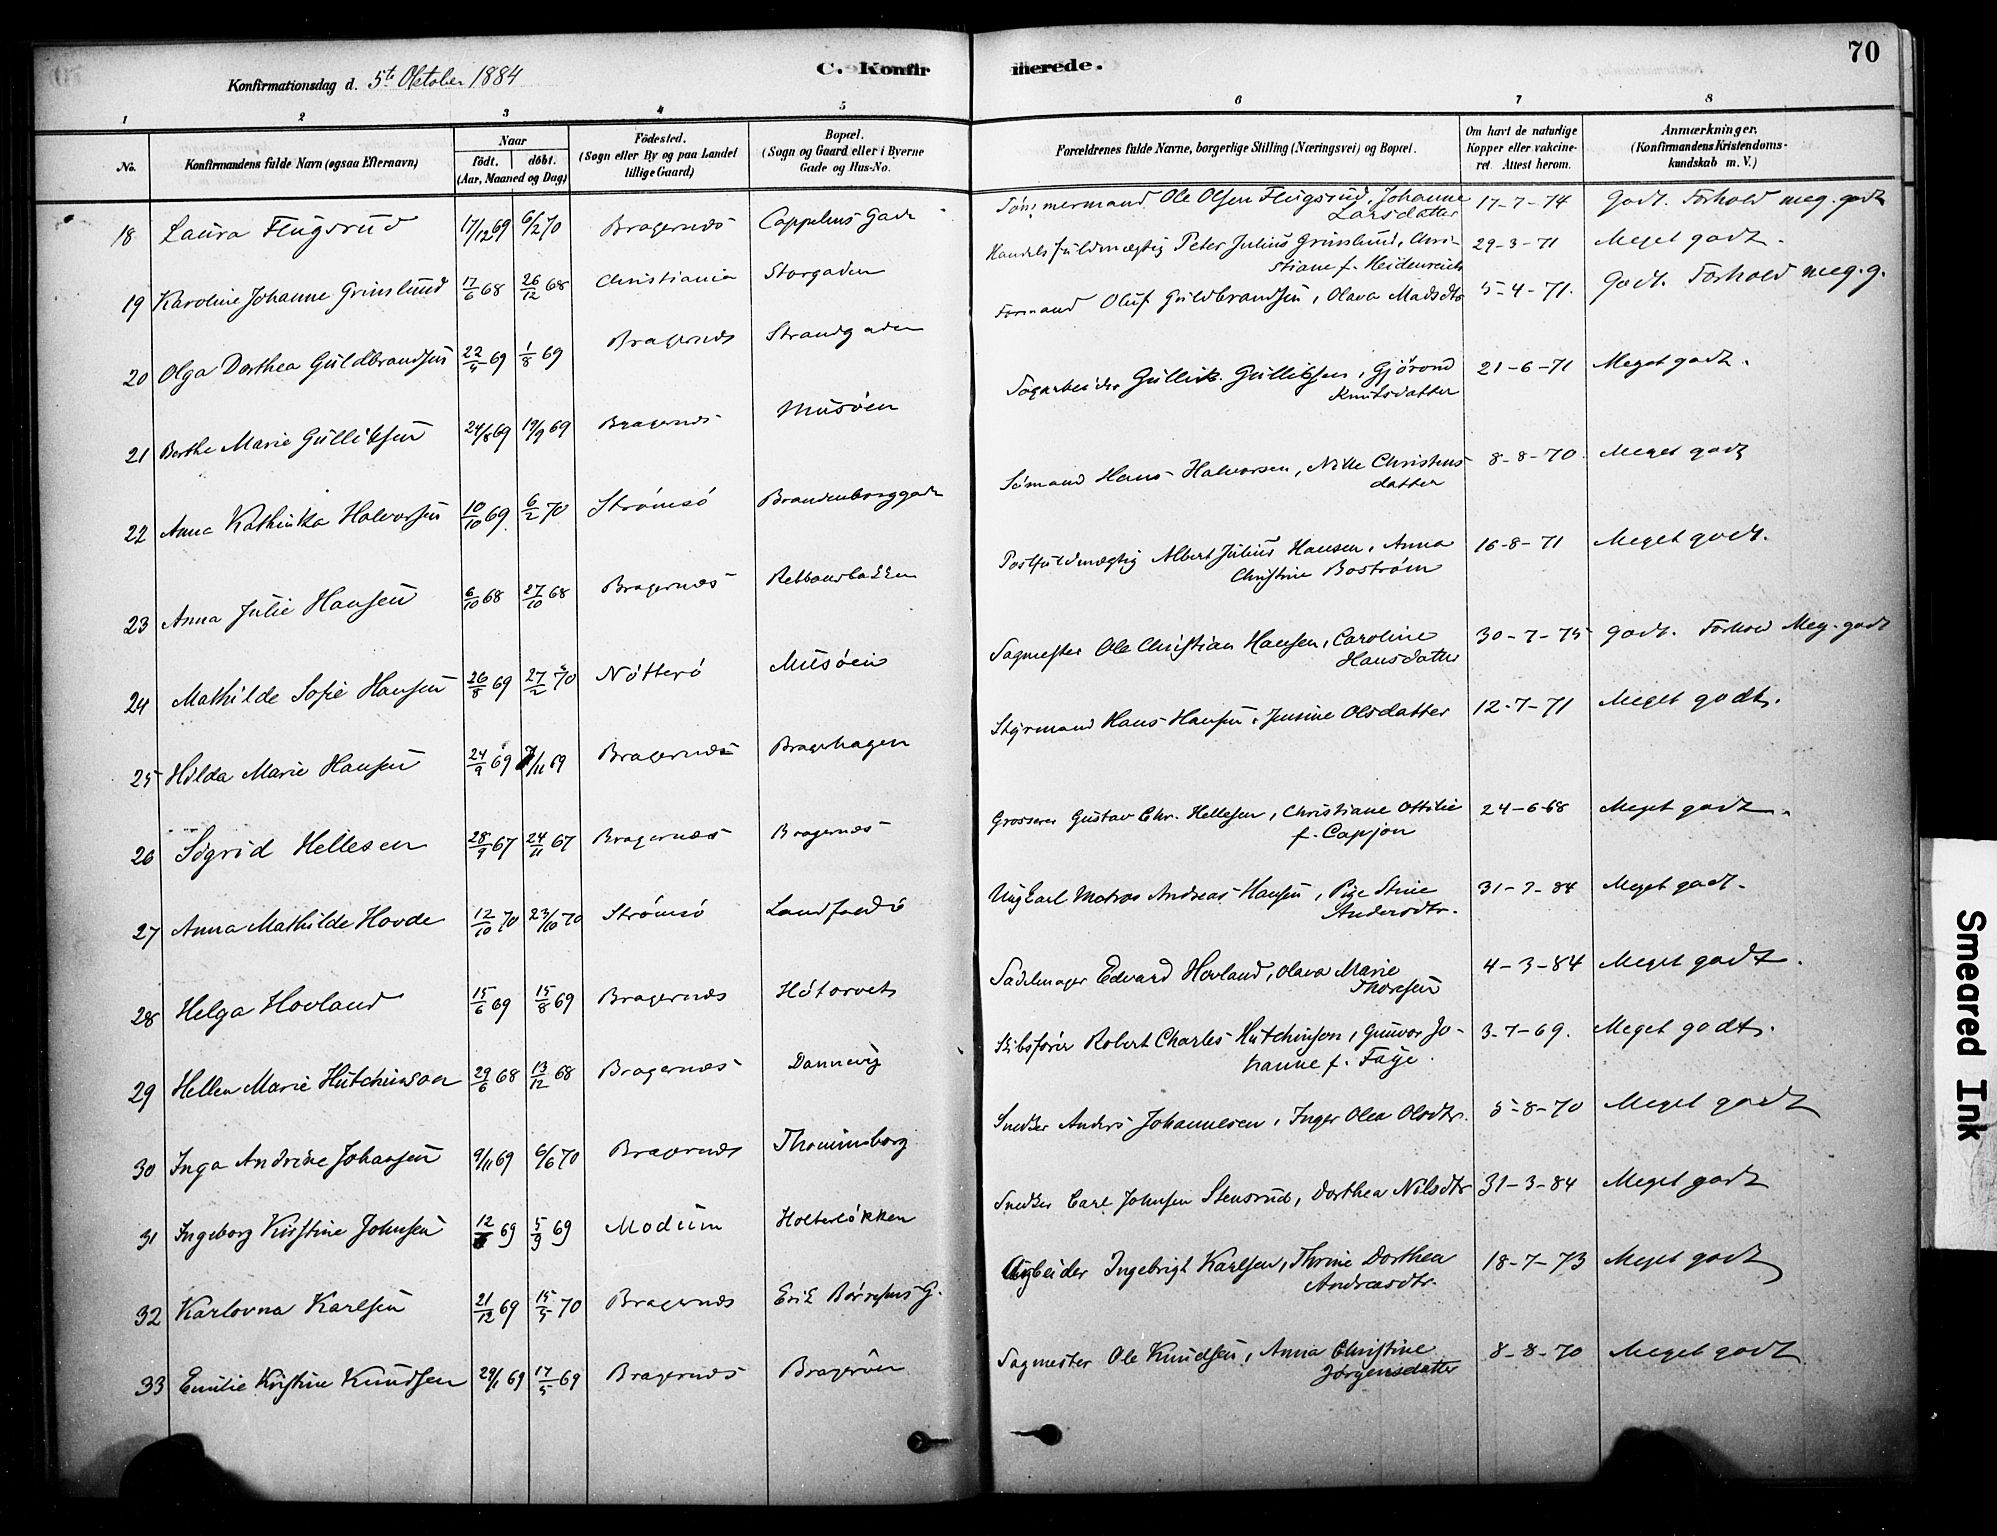 70
Konfirmationsdag d. 5te Oktober 1884
C. Konfirmerede.
1 2 3 4 5 6 7 8
No.
Konfirmandens fulde Navn (ogsaa Efternavn)
Naar
födt. döbt.
(Aar, Maaned og Dag)
Födested.
(Sogn eller By og paa Landet
tillige Gaard)
Bopæl.
(Sogn og Gaard eller i Byerne
Gade og Hus-No.
Forældrenes fulde Navne, borgerlige Stilling (Næringsvei) og Bopæl.
Om havt de naturlige
Kopper eller vakcine-
ret. Attest herom.
Anmærkninger,
(Konfirmandens Kristendoms-
kundskab m. V.)
18 Laura Flugsrud 17/12 69 6/2 70 Bragernæs Cappelens Gade Tömmermand Ole Olsen Flugsrud, Johanne 17-7-74 Godt. Forhold meg. godt
Larsdatter
19 Karoline Johanne Grinslund 17/6 68 26/12 68 Christiania Storgaden Handelsfuldmægtig Peter Julius Grinslund, Chri- 29-3-71 Meget godt.
stiane f. Heidenreich
20 Olga Dorthea Guldbrandsen 22/5 69 1/8 69 Bragernæs Strandgaden Formand Oluf Guldbrandsen, Olava Madsdtr 5-4-71. Godt. Forhold meg. g.
21 Berthe Marie Gulliksen 24/8 69 19/9 69 Bragernæs Musöen Sagarbeider Gullik Gulliksen, Gjörond 21-6-71 Meget godt.
Knutsdatter
22 Anna Kathinka Halvorsen 10/10 69 6/2 70 Strömsö Brandenborggade Sömand Hans Halvorsen, Nille Christens- 8-8-70. Meget godt
datter
23 Anna Julie Hansen 6/10 68 27/10 68 Bragernæs Rebbansbakken Postfuldmægtig Albert Julius Hansen, Anna 16-8-71 Meget godt.
Christine Boström
24 Mathilde Sofie Hansen 26/8 69 27/2 70 Nötterö Musöen Sagmester Ole Christian Hansen, Caroline 30-7-75 godt. Forhold Meg. godt
Hansdatter
25 Hilda Marie Hansen 24/9 69 7/11 69 Bragernæs Bragerhagen Styrmand Hans Hansen, Jensine Olsdatter 12-7-71 Meget godt.
26 Sigrid Hellesen 28/9 67 24/11 67 Bragernæs Bragernæs Grosserer Gustav Chr. Hellesen, Christiane Ottilie 24-6-68 Meget godt.
f. Capjon
27 Anna Mathilde Hovde 12/10 70 23/10 70 Strömsö Landfaldö Ungkarl Matros Andreas Hansen, Pige Stine 31-3-84 Meget godt.
Andersdtr.
28 Helga Hovland 15/6 69 15/8 69 Bragernæs Hötorvet Sadelmager Edvard Hovland, Olava Marie 4-3-84 Meget godt.
Thoresen
29 Hellen Marie Hutchinson 29/6 68 13/12 68 Bragernæs Dannevig Skibsförer Robert Charles Hutchinson, Gunvor Jo- 3-7-69. Meget godt.
hanne f. Faye.
30 Inga Andrine Johansen 9/11 69 6/6 70 Bragernæs Thomimsborg Snedker Anders Johannesen, Inger Olea Olsdtr. 5-8-70 Meget godt
31 Ingeborg Kristine Johnsen 12/ 69 5/9 69 Modum Holterlökken Snedker Carl Johnsen Stensrud, Dorthea Nilsdtr 31-3-84 Meget godt
32 Karlovna Karlsen 21/12 69 15/5 70 Bragernæs Erik Börresens G. Arbeider Ingebrigt Karlsen, Thrine Dorthea 18-7-73 Meget godt
Andreasdtr.
33 Emilie Kristine Knudsen 29/1 69 17/5 69 Bragernæs Brageröen Sagmester Ole Knudsen, Anna Christine 8-8-70 Meget godt
Jörgensdatter
Smeared Ink